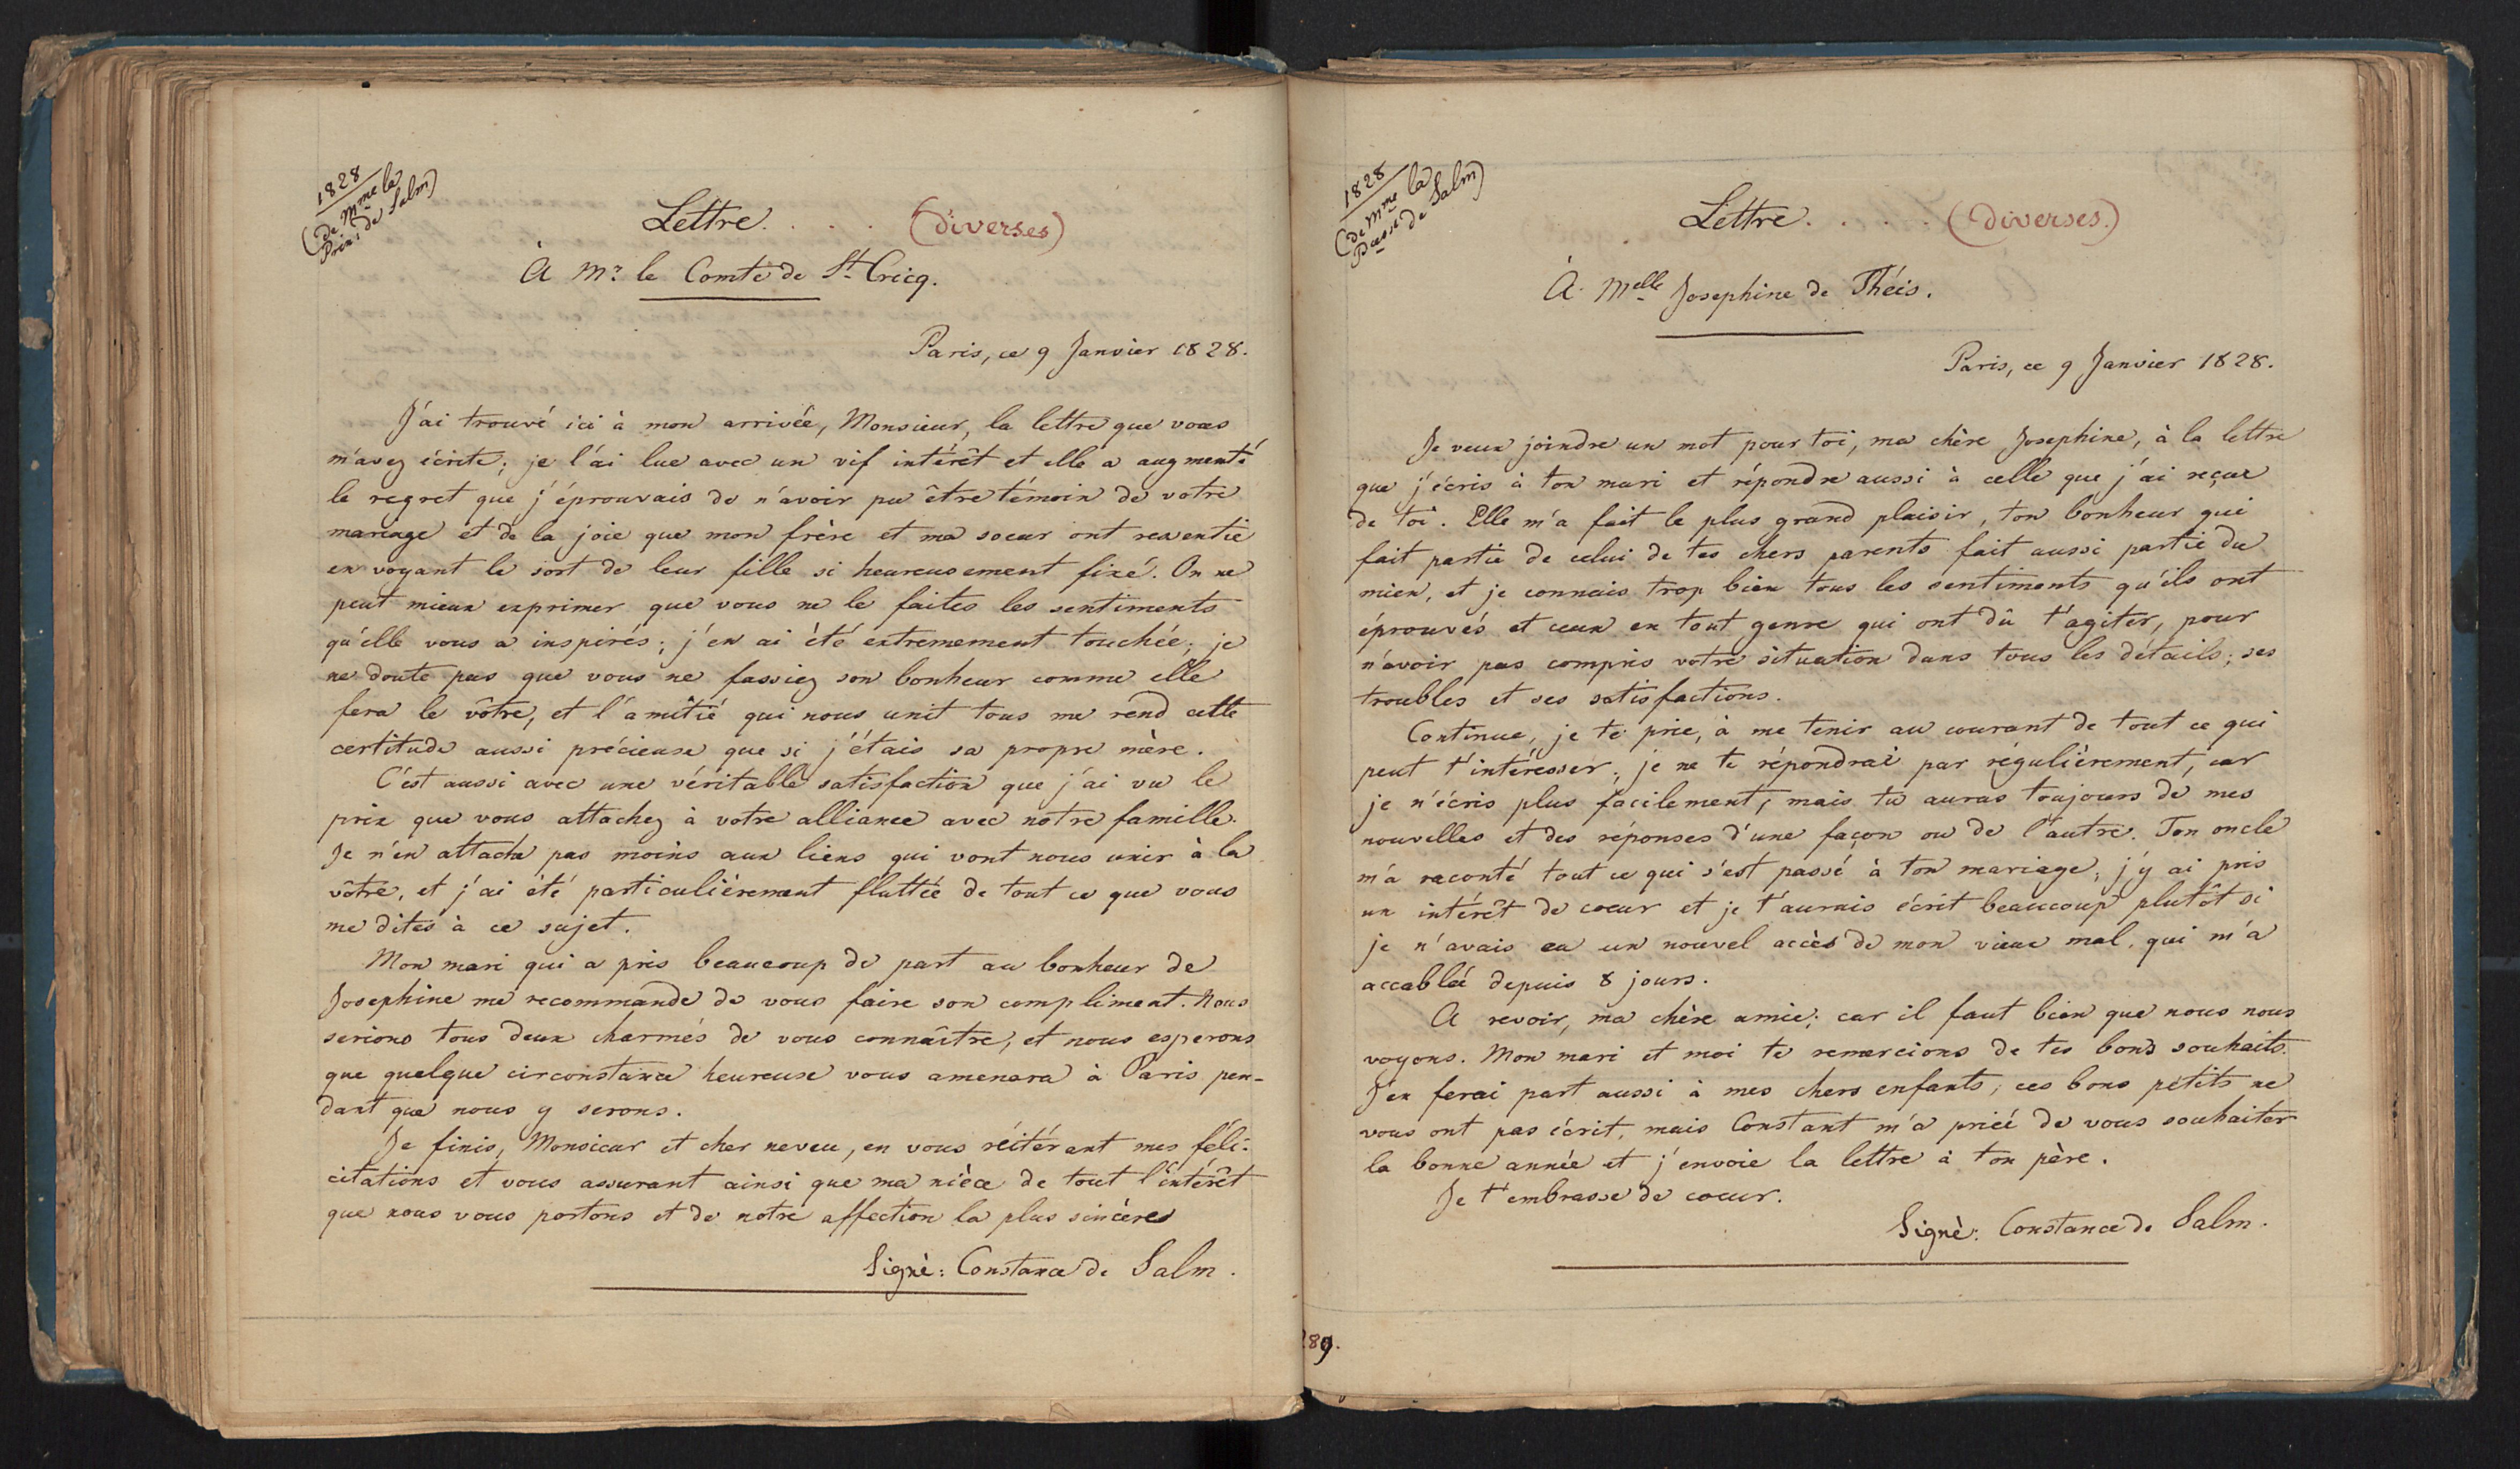 1828
(de Mme la
Prin: de Salm)
Lettre. . . . (diverses)
À Mr. le Comte de St. Cricq.
Paris, ce 9 Janvier 1828.
J'ai trouvé ici à mon arrivée, Monsieur, la lettre que vous
m'avez écrite; je l'ai lue avec un vif intérêt et elle a augmenté
le regret que j'éprouvais de n'avoir pu être témoin de votre
mariage et de la joie que mon frère et ma soeur ont ressentie
en voyant le sort de leur fille si heureusement fixé. On ne
peut mieux exprimer que vous ne le faites les sentiments
qu'elle vous a inspirés; j'en ai été extremement touchée; je
ne doute pas que vous ne fassiez son bonheur comme elle
fera le vôtre, et l'amitié qui nous unit tous me rend cette
certitude aussi précieuse que si j'étais sa propre mère.
C'est aussi avec une véritable satisfaction que j'ai vu le
prix que vous attachez à votre alliance avec notre famille.
Je n'en attache pas moins aux liens qui vont nous unir à la
vôtre, et j'ai été particulièrement flattée de tout ce que vous
me dites à ce sujet.
Mon mari qui a pris beaucoup de part au bonheur de
Josephine me recommande de vous faire son compliment. Nous
serions tous deux charmés de vous connaître, et nous esperons
que quelque circonstance heureuse vous amenera à Paris pen-
dant que nous y serons.
Je finis, Monsieur et cher neveu, en vous réitérant mes féli-
citations et vous assurant ainsi que ma nièce de tout l'intérêt
que nous vous portons et de notre affection la plus sincère
Signé: Constance de Salm.
1828
(de Mme la
Pcesse de Salm)
Lettre. . . . . (diverses.)
À Melle Josephine de Théis.
Paris, ce 9 Janvier 1828.
Je veux joindre un mot pour toi, ma chère Josephine, à la lettre
que j'écris à ton mari et répondre aussi à celle que j'ai reçue
de toi. Elle m'a fait le plus grand plaisir, ton bonheur qui
fait partie de celui de tes chers parents fait aussi partie du
mien, et je connais trop bien tous les sentiments qu'ils ont
éprouvés et ceux en tout genre qui ont dû t'agiter, pour
n'avoir pas compris votre situation dans tous les détails; ses
troubles et ses satisfactions.
Continue, je te prie, à me tenir au courant de tout ce qui
peut t'intéresser; je ne te répondrai par régulièrement, car
je n'écris plus facilement; mais tu auras toujours de mes
nouvelles et des réponses d'une façon ou de l'autre. Ton oncle
m'a raconté tout ce qui s'est passé à ton mariage; j'y ai pris
un intérêt de coeur et je t'aurais écrit beaucoup plutôt si
je n'avais eu un nouvel accès de mon vieux mal, qui m'a
accablée depuis 8 jours.
A revoir, ma chère amie; car il faut bien que nous nous
voyons. Mon mari et moi te remercions de tes bons souhaits.
J'en ferai part aussi à mes chers enfants; ces bons petits ne
vous ont pas écrit, mais Constant m'a priée de vous souhaiter
la bonne année et j'envoie la lettre à ton père.
Je t'embrasse de coeur.
Signé: Constance de Salm.
289.